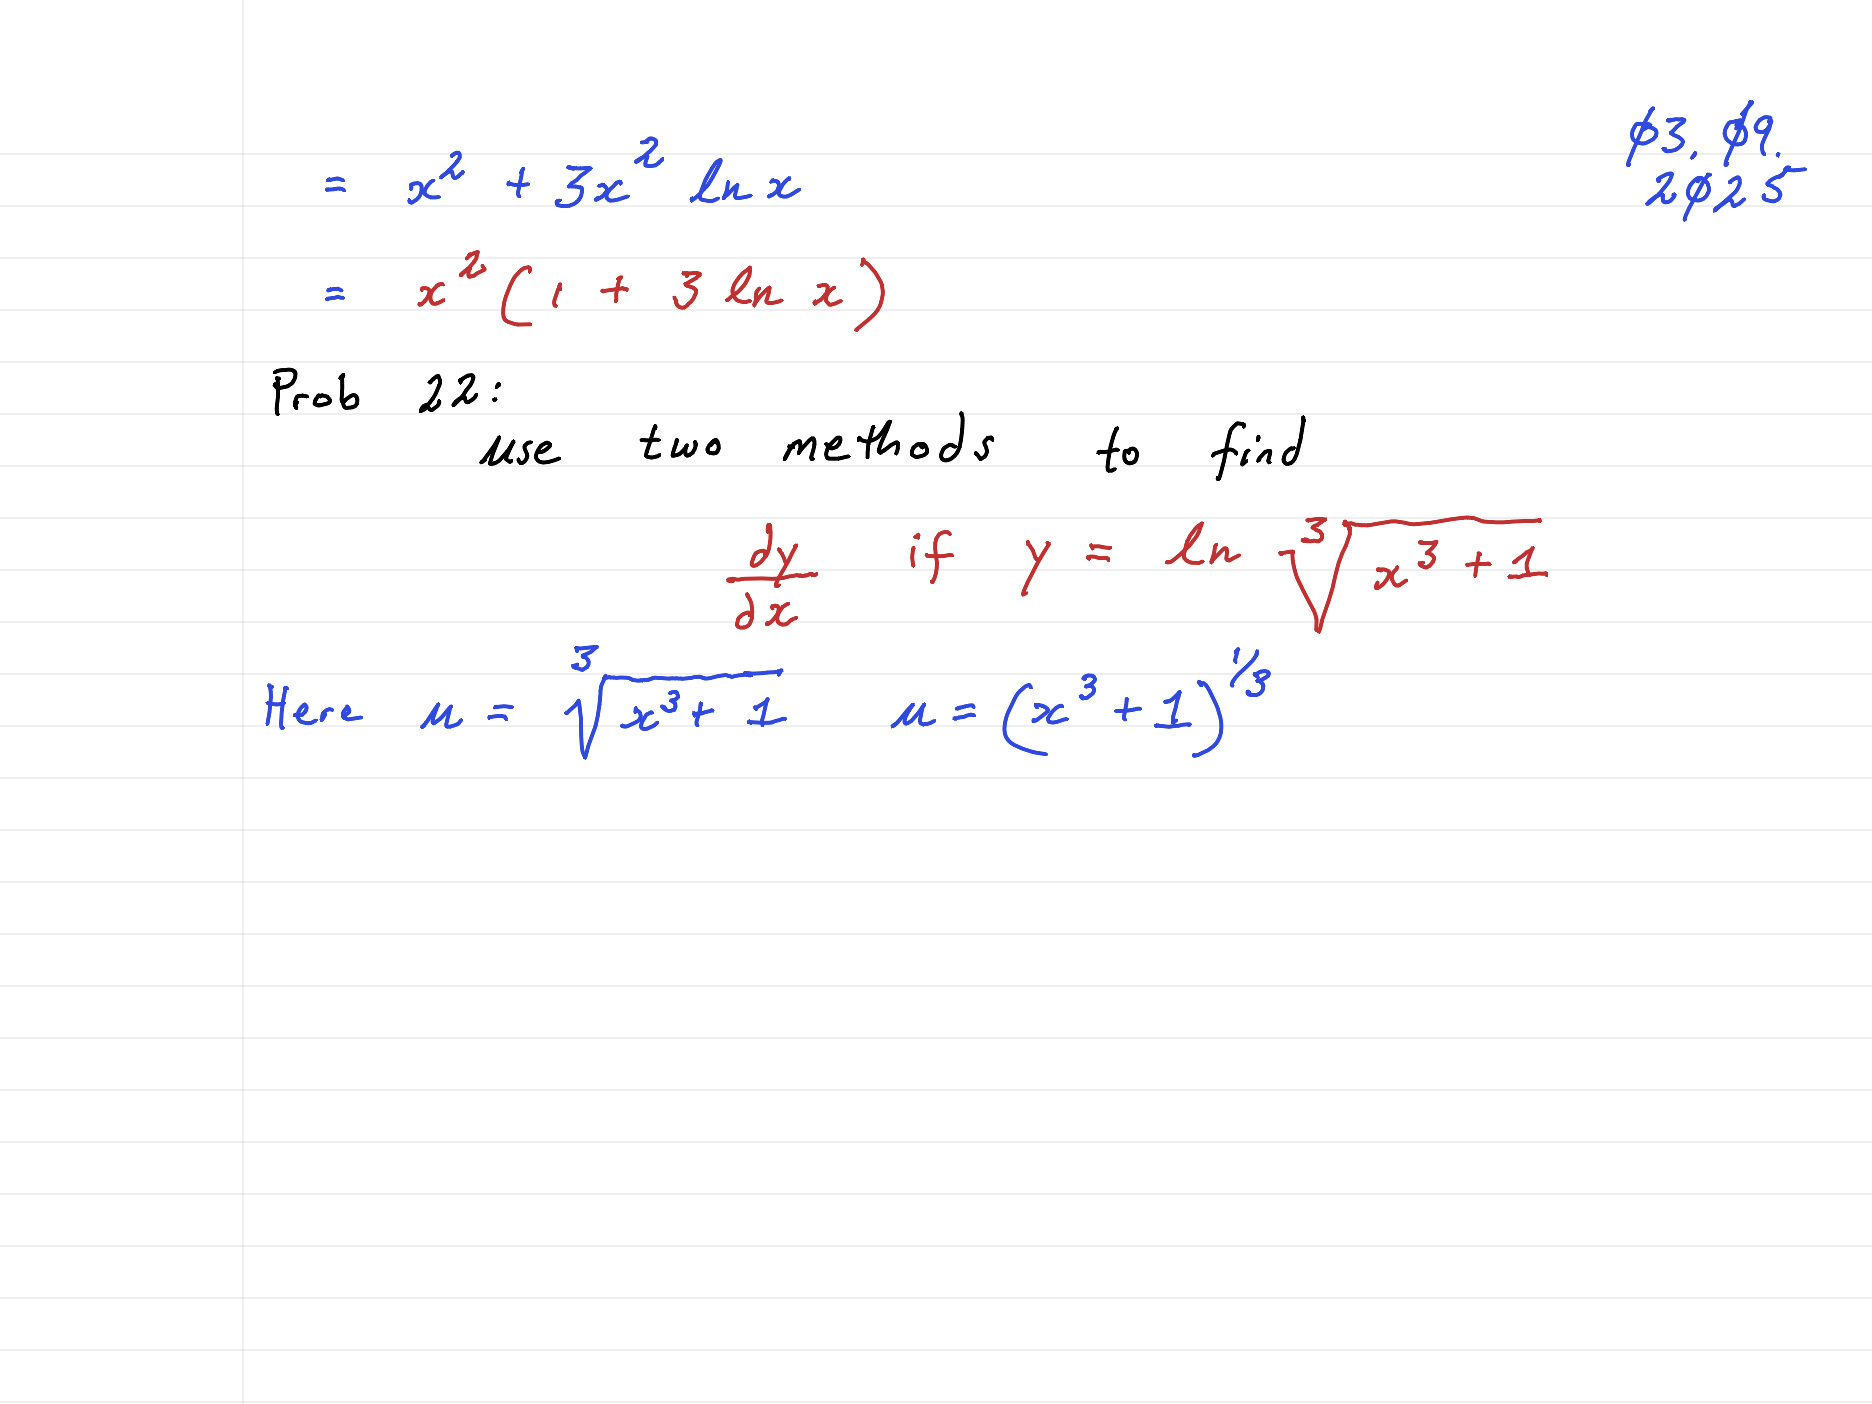 ø3. ø9.
2ø25
= x² + 3x² ln x
= x² (1 + 3 ln x)
Prob 22:
use two methods to find
dy/dx if y = ln ∛(x³ + 1)
Here u = ∛(x³ + 1) u = (x³ + 1)^(1/3)